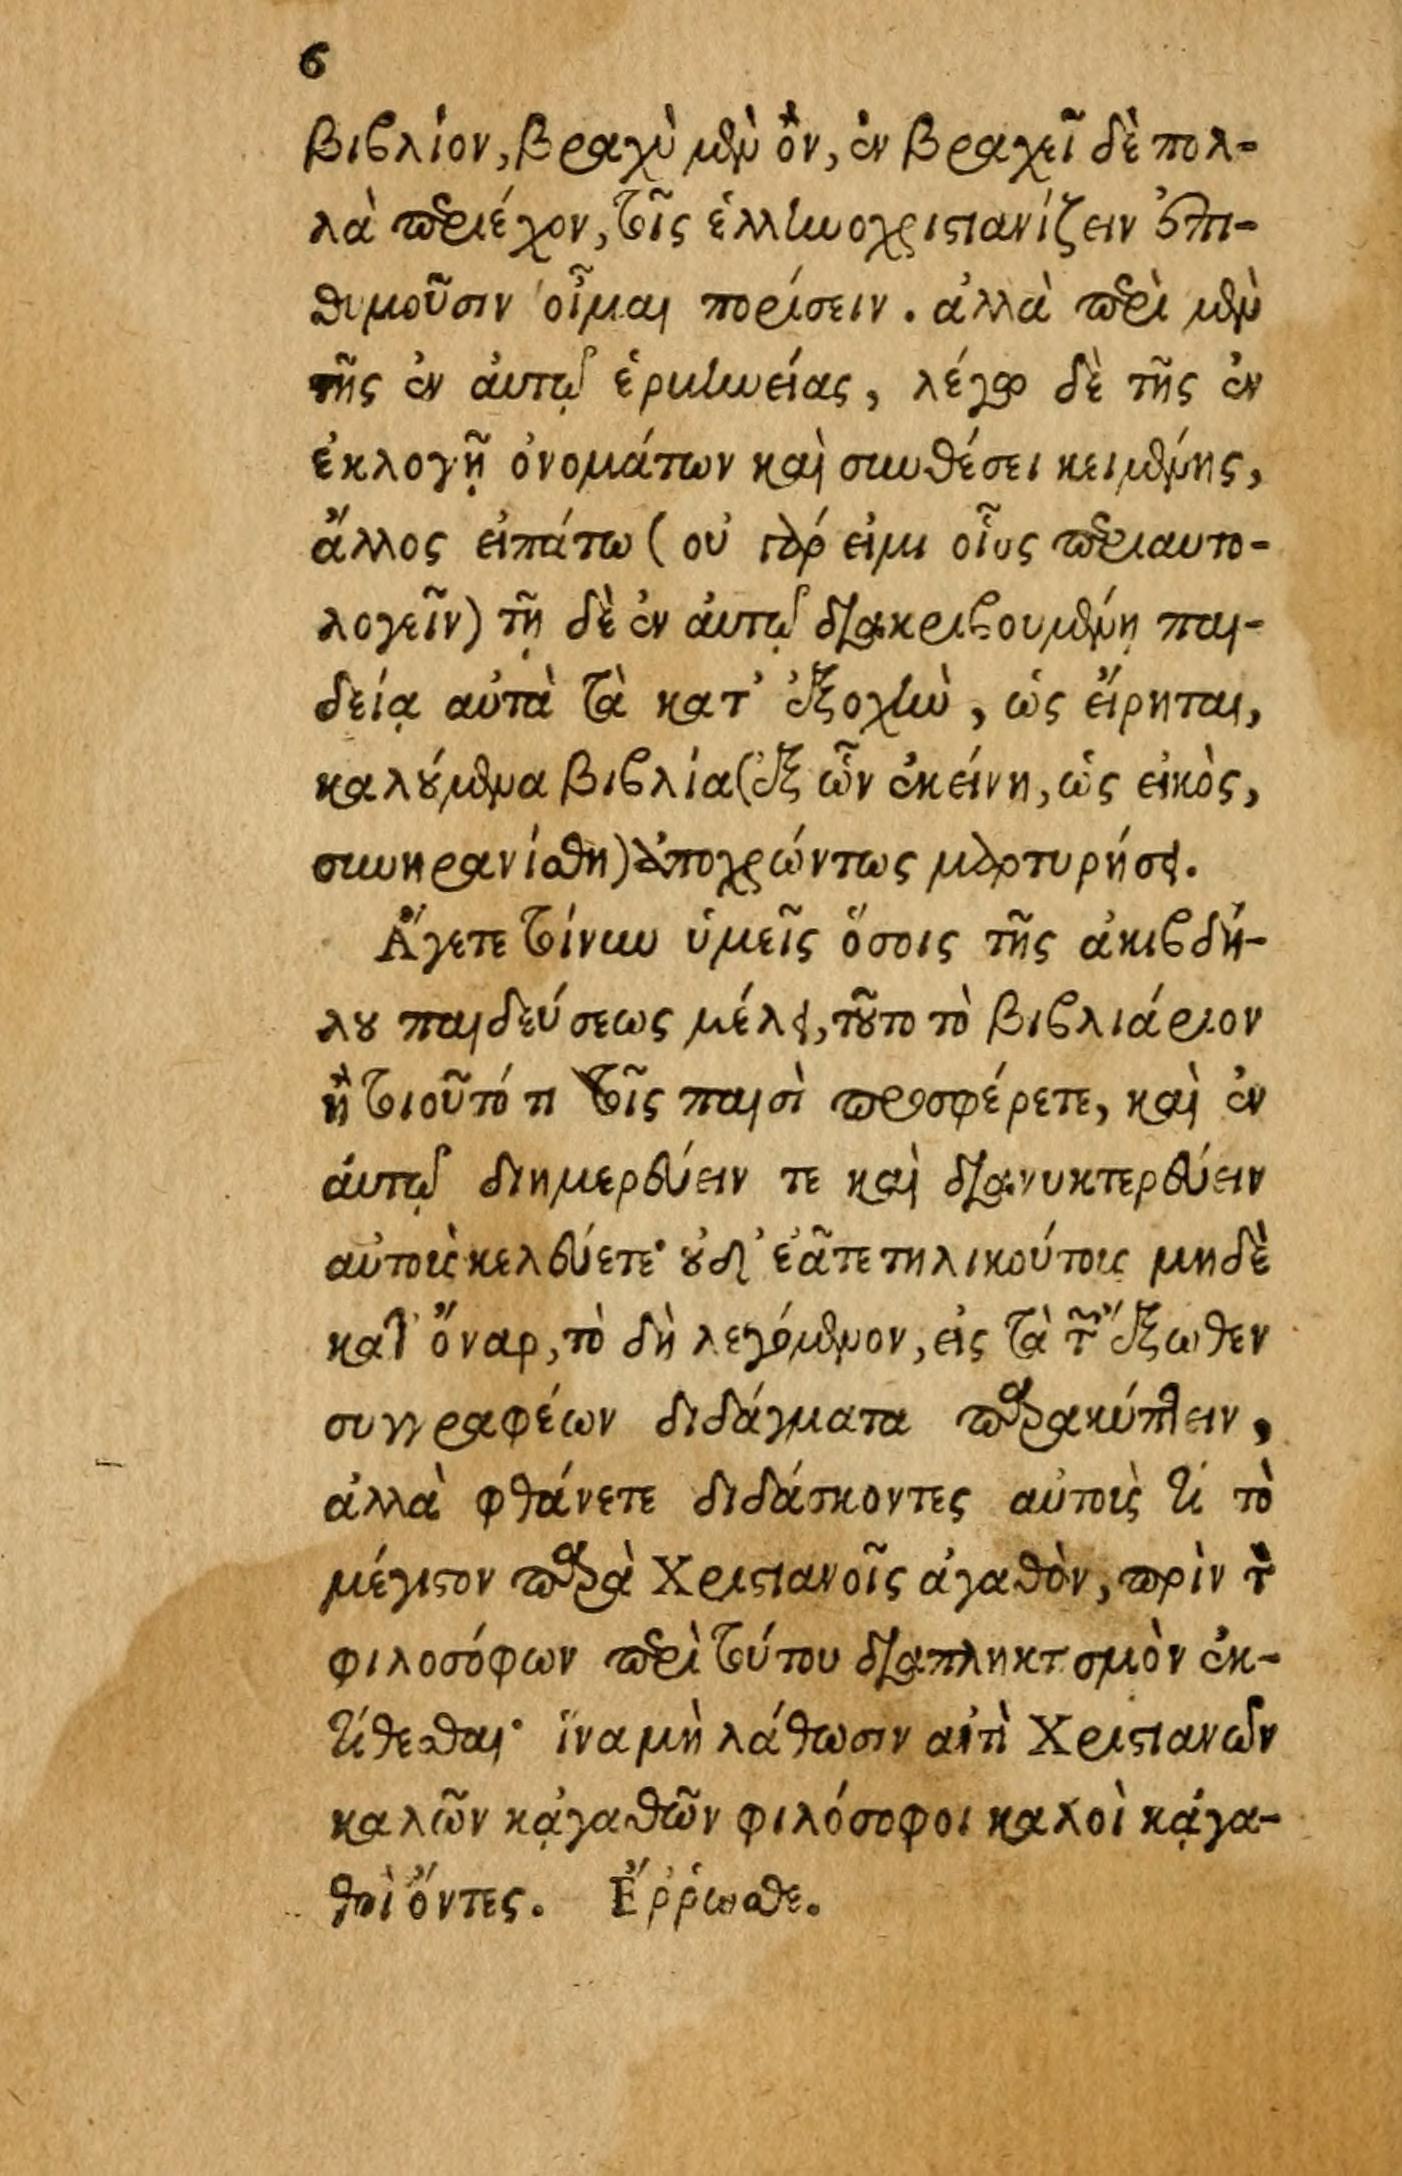 6
βιβλίον, βραχὺ μὲν ὂν, ἐν βραχεῖ δὲ πολ-
λὰ περιέχον, τοῖς ἑλληνοχριστιανίζειν ἐπι-
θυμοῦσιν οἶμαι πορίσειν. ἀλλὰ περὶ μὲν
τῆς ἐν ἀυτῷ ἑρμηνείας, λέγω δὲ τῆς ἐν
ἐκλογῇ ὀνομάτων καὶ συνθέσει κειμένης,
ἄλλος εἰπάτω (οὐ γάρ εἰμι οἷος περιαυτο-
λογεῖν) τῇ δὲ ἐν ἀυτῷ διακριβουμένῃ παι-
δείᾳ αὐτὰ τὰ κατ' ἐξοχὴν, ὡς εἴρηται,
καλούμενα βιβλία (ἐξ ὧν ἐκείνη, ὡς εἰκὸς,
συνηρανίσθη) ἀποχρώντως μαρτυρήσει.
Ἄγετε τοίνυν ὑμεῖς ὅσοις τῆς ἀκιβδή-
λου παιδεύσεως μέλει, τοῦτο τὸ βιβλιάριον
ἢ τοιοῦτό τι τοῖς παισὶ προσφέρετε, καὶ ἐν
ἀυτῷ διημερεύειν τε καὶ διανυκτερεύειν
αὐτοὺς κελεύετε· οὐδ' ἐᾶτε τηλικούτους μηδὲ
κατ' ὄναρ, τὸ δὴ λεγόμενον, εἰς τὰ τῶν ἔξωθεν
συγγραφέων διδάγματα παρακύπτειν,
ἀλλὰ φθάνετε διδάσκοντες αὐτοὺς τί τὸ
μέγιστον παρὰ Χριστιανοῖς ἀγαθὸν, πρὶν τὸν
φιλοσόφων περὶ τούτου διαπληκτισμὸν ἐκ-
τίθεσθαι· ἵνα μὴ λάθωσιν ἀντὶ Χριστιανῶν
καλῶν κᾀγαθῶν φιλόσοφοι καλοὶ κᾀγα-
θοὶ ὄντες. Ἔῤῥωσθε.